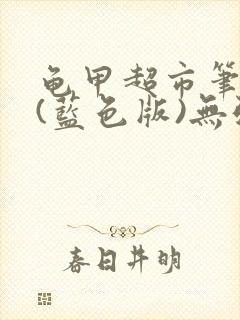 龟甲超市筆
(藍色版)無
春日井明